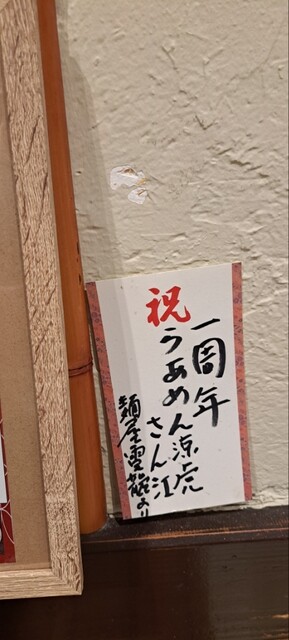 祝
一周年
うあめん涼虎
さん江
麺屋雲龍より